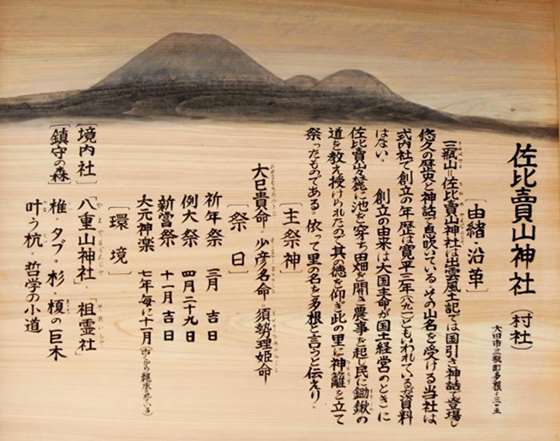 佐比賣山神社（村社）
大田市三瓶町多根イ三の五
［由緒・沿革］
三瓶山＝佐比賣山神社は出雲風土記では国引き神話で登場し
悠久の歴史と神話が息吹いている。その山名を受ける当社は
式内社で創立の年歴は寛平三年（八九一）ともいわれているが資料
はない。 創立の由来は大国主命が国土経営のときに
佐比賣山々麓に池を穿ち田畑を開き農事を起し民に鋤鍬の
道を教え授けられたので其の徳を仰ぎ此の里に神籬を立て
祭ったものである。依って里の名を多根と言うと伝えり。
［主祭神］
大己貴命・少彦名命・須勢理姫命
［祭日］
祈年祭 三月 吉日
例大祭 四月二十九日
新嘗祭 十一月 吉日
大元神楽 七年毎に十一月
［環境］
［境内社］ 八重山神社・「祖霊社」
［鎮守の森］ 椎 タブ・杉 榎の巨木
叶う杭・哲学の小道